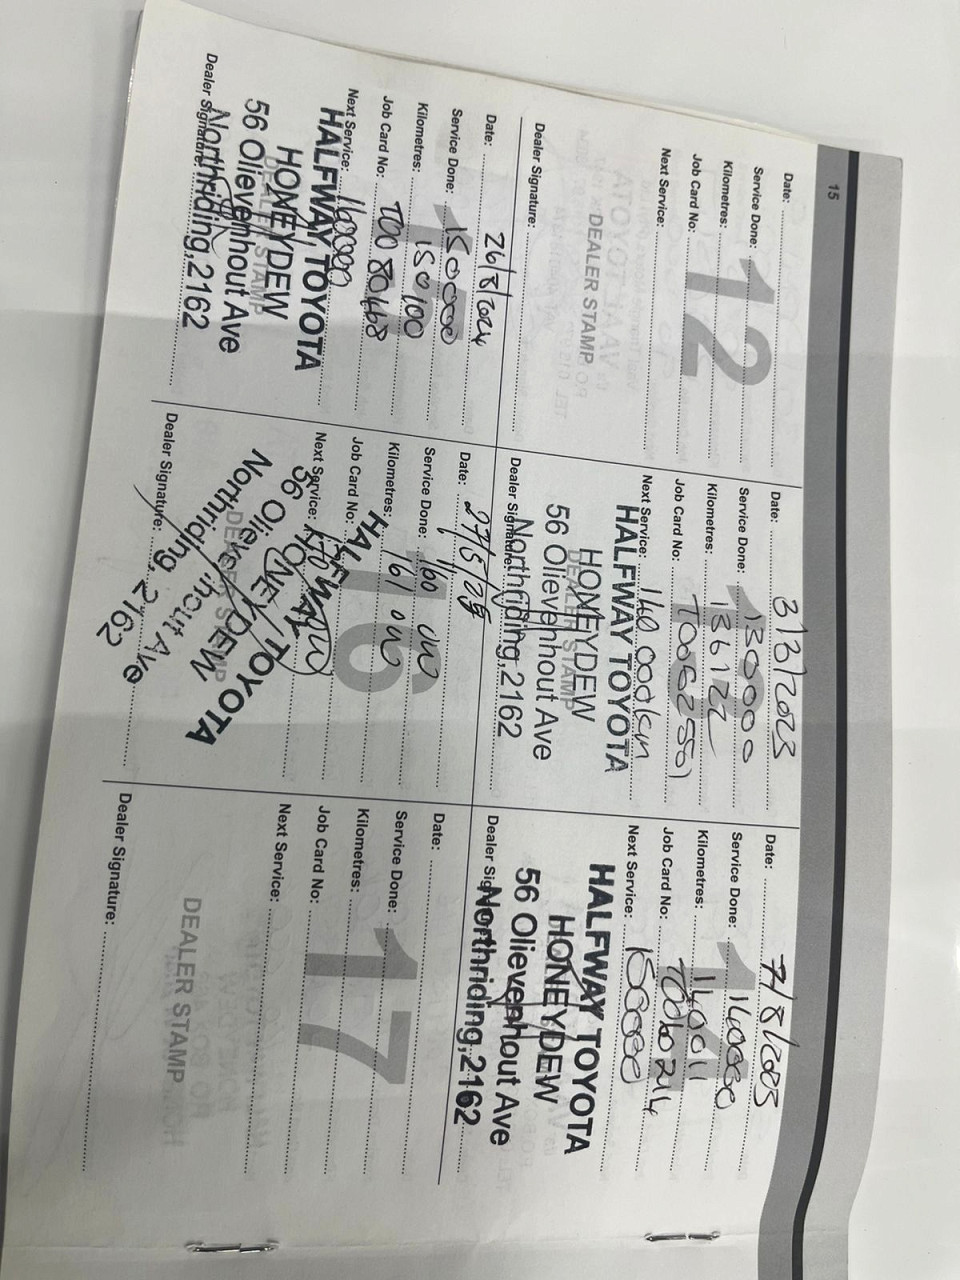 15
12
Date:
Service Done:
Kilometres:
Job Card No:
Next Service:
DEALER STAMP
Dealer Signature:
13
Date: 3/3/2023
Service Done: 130000
Kilometres: 136122
Job Card No:
Next Service: 140 000km
HALFWAY TOYOTA
HONEYDEW
DEALER STAMP
56 Olievenhout Ave
Northriding,2162
Dealer Signature:
14
Date: 7/8/2023
Service Done: 140000
Kilometres: 140011
Job Card No:
Next Service: 150000
HALFWAY TOYOTA
HONEYDEW
56 Olievenhout Ave
Northriding,2162
Dealer
Date: 26/8/2024
Service Done: 150000
Kilometres: 150100
Job Card No: T0080468
Next Service: 160000
HALFWAY TOYOTA
HONEYDEW
DEALER STAMP
56 Olievenhout Ave
Northriding,2162
Dealer Signature:
16
Date: 27/5/25
Service Done: 160 000
Kilometres: 161 000
Job Card No:
Next Service:
HALFWAY TOYOTA
HONEYDEW
DEALER STAMP
56 Olievenhout Ave
Northriding, 2162
Dealer Signature:
17
Date:
Service Done:
Kilometres:
Job Card No:
Next Service:
DEALER STAMP
Dealer Signature: